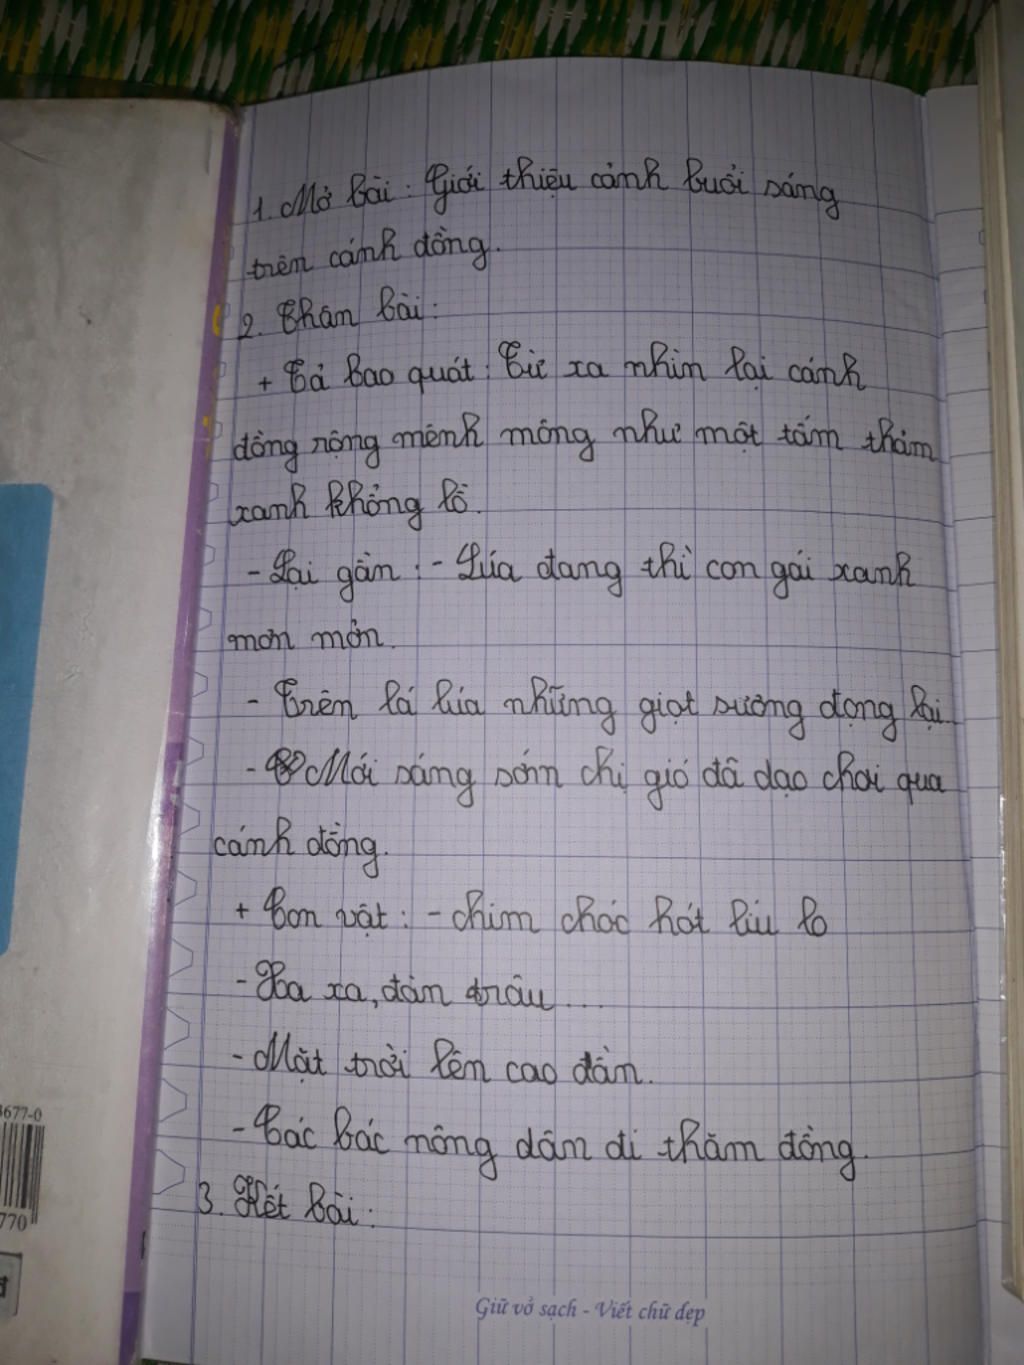 1. Mở bài: Giới thiệu cảnh buổi sáng
trên cánh đồng.
2. Thân bài:
+ Tả bao quát: Từ xa nhìn lại cánh
đồng rộng mênh mông như một tấm thảm
xanh khổng lồ.
- Lại gần: - Lúa đang thì con gái xanh
mơn mởn.
- Trên lá lúa những giọt sương đọng lại.
- Mới sáng sớm chị gió đã dạo chơi qua
cánh đồng.
+ Con vật: - chim chóc hót líu lo
- Xa xa, đàn trâu...
- Mặt trời lên cao dần.
- Các bác nông dân đi thăm đồng.
3. Kết bài:
Giữ vở sạch - Viết chữ đẹp
3677-0
770